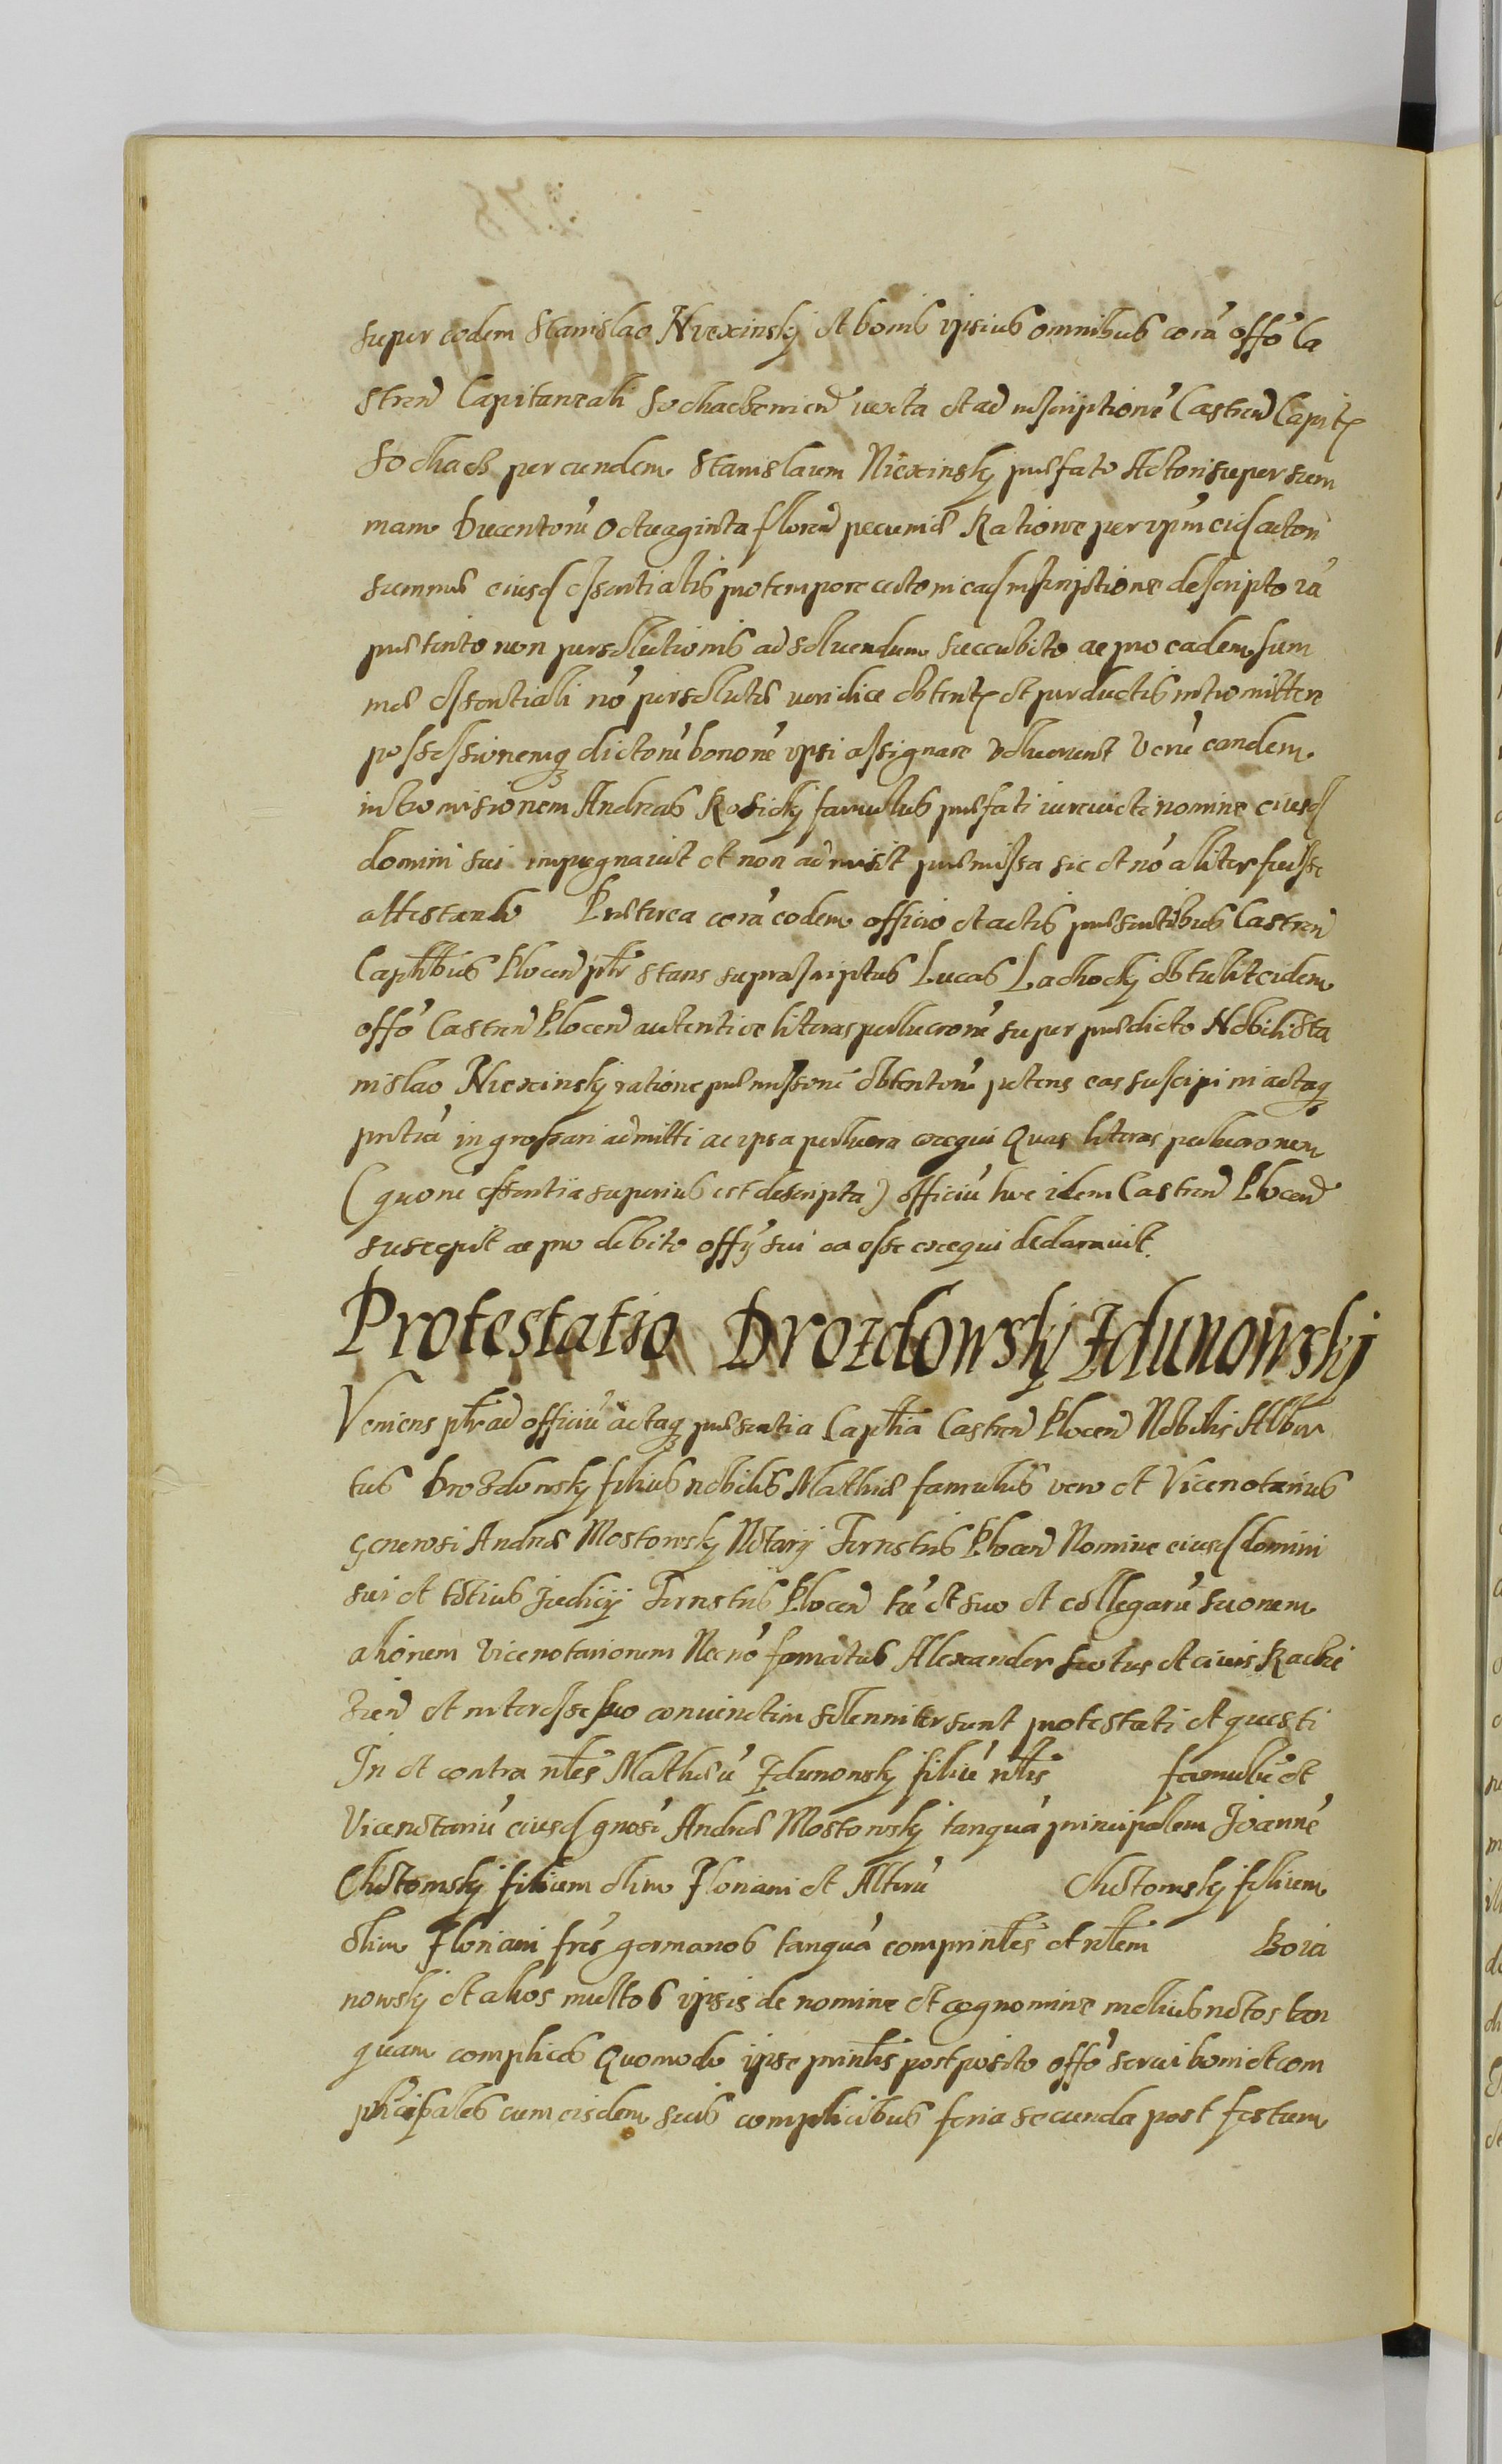 super eodem Stanislao Niexinsky et bonis ipsius omnibus corã offõ Ca
stren Capitaneali Sochaczewien iuxta et ad inscriptionẽ Castren Capit
Sochacz per eundem Stanislaum Niexinsky præfato Actori super sum
mam Ducentorũ Octuaginta floren pecuniæ Ratione per ipm eid actori
summæ eiusd essentialis pro tempore certo in ead inscriptione descripto iã
præterito non persolutionis ad solvendum succubito ac pro eadem sum
ma essentiali nõ persoluta veridice obtent et perductis intromittere
possessionemq dictorũ bonorũ ipsi assignare voluerunt Verũ eandem
intromisionem Andreas Kosicky famulus præfati iurevicti nomine eiusd
domini sui impugnavit et non admisit præmissa sic et nõ aliter fuisse
attestando Præterea corã eodem officio et actis præsentibus Castren
Capthbus Plocen pltr stans suprascriptus Lucas Lachocky obtulit eidem
offõ Castren Plocen autenticas literas perlucrorũ super prædicto Nobili Sta
nislao Niexinsky ratione præmissorũ obtentorũ petens eas suscipi in actaq
pntia ingrossari admitti ac ipsa perlucra exequi Quas literas perlucrorum
(quorũ essentia superius est descripta) officiũ hoc idem Castren Plocen
suscepit ac pro debito offy sui ea esse exequi declaravit.
Protestatio Drozdowsky Zdunowskj
Veniens pltr ad officiũ actaq præsentia Capthia Castren Plocen Nobilis Alber
tus Drozdowsky filius nobilis Mathiæ famulus vero et Vicenotarius
generosi Andreæ Mostowsky Notarij Terrestris Plocen Nomine eiusd domini
sui et totius Judicij Terrestris Plocen tũ et suo et collegarũ suorum
aliorum vicenotariorum Necnõ famatus Alexander scotus et civis Racziᶻ
zien et interesse suo coniunctim solenniter sunt protestati et questi
In et contra nbles Mathiã Zdunowsky filiũ nblis famulũ et
Vicenotariũ eiusd gnosi Andreæ Mostowsky tanquã principalem Joannẽ
Chotomsky filium olim Floriani et Alterũ Chotomsky filium
olim Floriani frẽs germanos tanquã comprinles et nblem Boia
nowsky et alios multos ipsis de nomine et cognomine melius notos tan
quam complices Quomodo ipse prinlis postposito offõ servi boni et com
plicipales cum eisdem suis complicibus feria secunda post festum